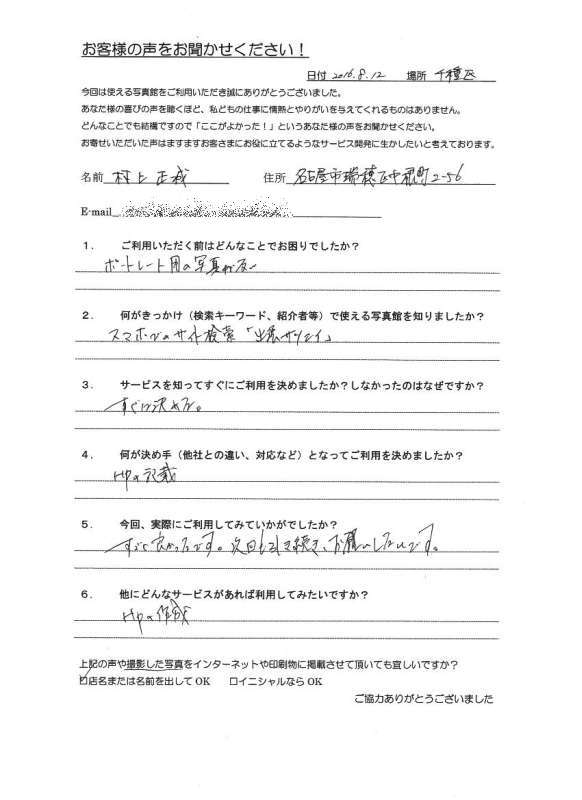 お客様の声をお聞かせください！
日付 2016.8.12 場所 千種区
今回は使える写真館をご利用いただき誠にありがとうございました。
あなた様の喜びの声を聴くほど、私どもの仕事に情熱とやりがいを与えてくれるものはありません。
どんなことでも結構ですので「ここがよかった！」というあなた様の声をお聞かせください。
お寄せいただいた声はますますお客さまにお役に立てるようなサービス開発に生かしたいと考えております。
名前 村上正哉 住所 名古屋市瑞穂区中根町2-56
E-mail
１． ご利用いただく前はどんなことでお困りでしたか？
ポートレート用の写真が無い
２． 何がきっかけ（検索キーワード、紹介者等）で使える写真館を知りましたか？
スマホでのサイト検索「出張サツエイ」
３． サービスを知ってすぐにご利用を決めましたか？しなかったのはなぜですか？
すぐに決めた。
４． 何が決め手（他社との違い、対応など）となってご利用を決めましたか？
HPの記載
５． 今回、実際にご利用してみていかがでしたか？
すごく良かったです。次回も引き続き、お願いしたいです。
６． 他にどんなサービスがあれば利用してみたいですか？
HPの作成
上記の声や撮影した写真をインターネットや印刷物に掲載させて頂いても宜しいですか？
☑店名または名前を出して OK □イニシャルなら OK
ご協力ありがとうございました